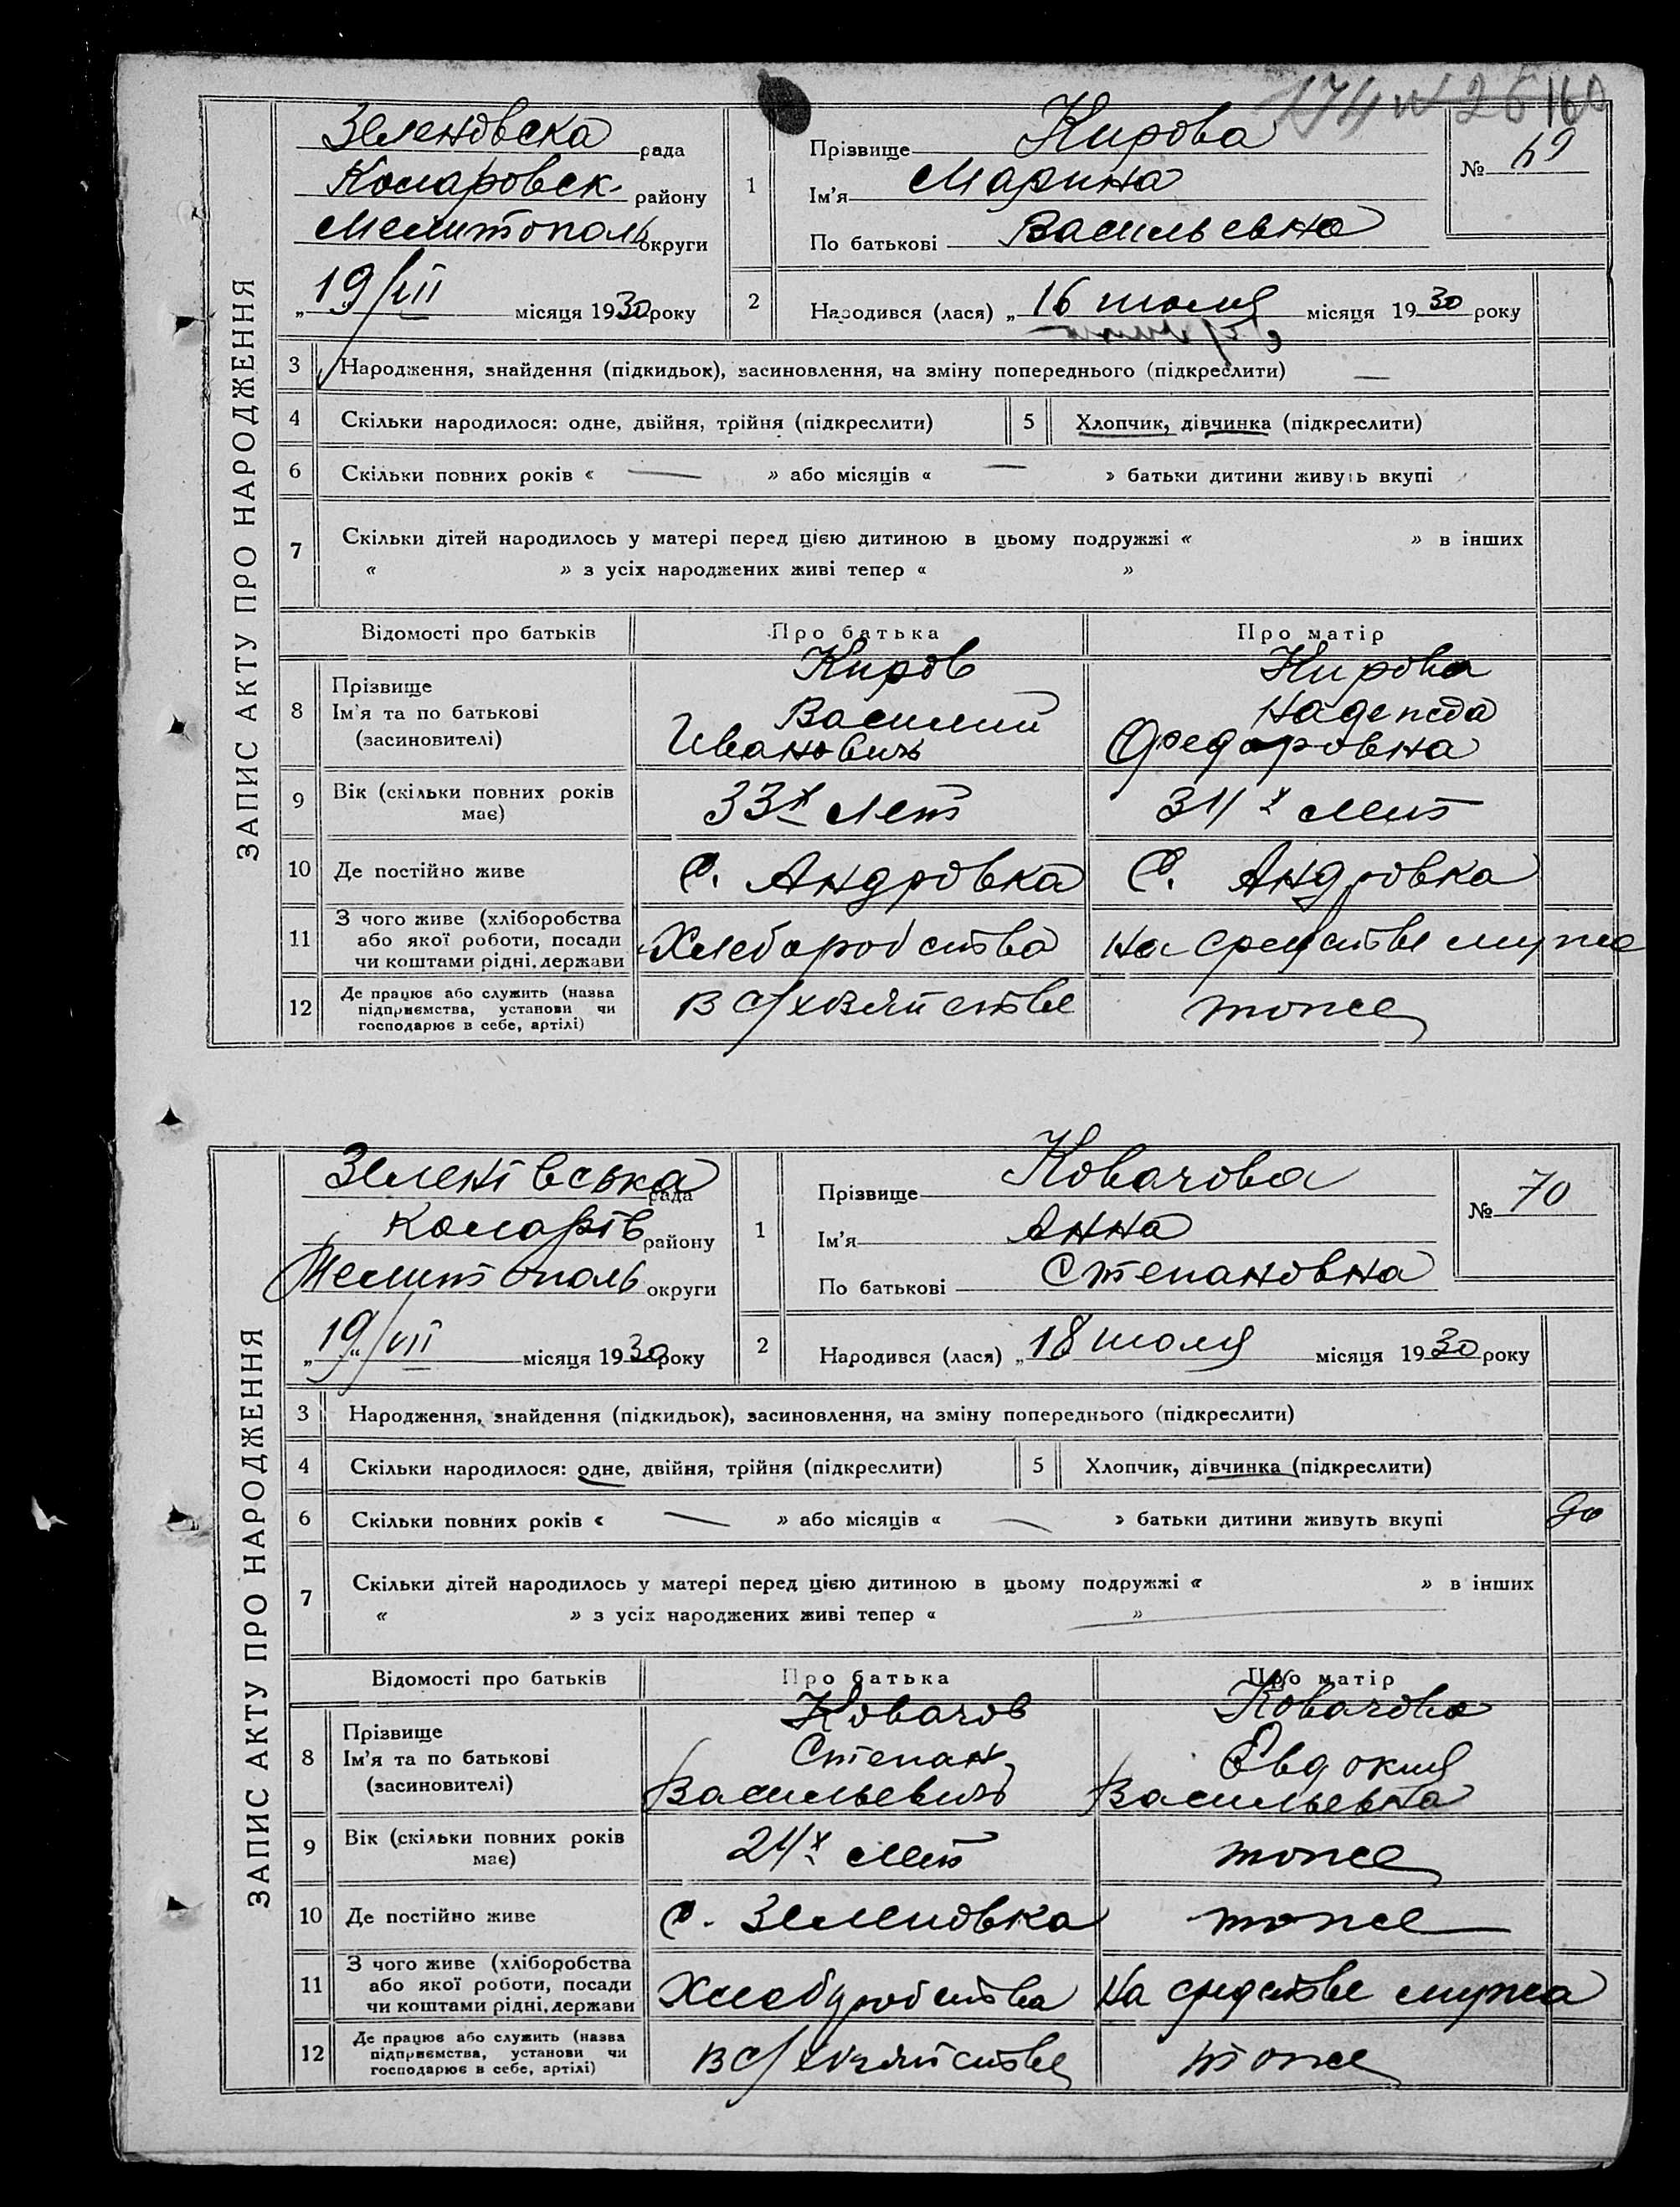 160
ЗАПИС АКТУ ПРО НАРОДЖЕННЯ
Зеленовска рада
Комаровск. району
Мелитополь округи
„19/VII місяця 1930 року
1
Прізвище Кирова
Ім'я Марина
По батькові Васильевна
№ 69
2
Народився (лася) „16 июля місяця 1930 року
3 Народження, знайдення (підкидьок), засиновлення, на зміну попереднього (підкреслити) —
4 Скільки народилося: одне, двійня, трійня (підкреслити) 5 Хлопчик, дівчинка (підкреслити)
6 Скільки повних років « — » або місяців « — » батьки дитини живуть вкупі
7 Скільки дітей народилось у матері перед цією дитиною в цьому подружжі « » в інших
« » з усіх народжених живі тепер « »
Відомості про батьків Про батька Про матір
8 Прізвище Киров Кирова
Ім'я та по батькові Василий Надежда
(засиновителі) Иванович Федоровна
9 Вік (скільки повних років має) 33х лет 31х лет
10 Де постійно живе С. Андровка С. Андровка
11 З чого живе (хліборобства
або якої роботи, посади Хлеборобства на средстве мужа
чи коштами рідні, держави
12 Де працює або служить (назва
підприємства, установи чи В с/хозяйстве тоже
господарює в себе, артілі)
ЗАПИС АКТУ ПРО НАРОДЖЕННЯ
Зеленівська рада
Комарів району
Мелитополь округи
„19/VII місяця 1930 року
1
Прізвище Ковачова
Ім'я Анна
По батькові Степановна
№ 70
2
Народився (лася) „18 июля місяця 1930 року
3 Народження, знайдення (підкидьок), засиновлення, на зміну попереднього (підкреслити)
4 Скільки народилося: одне, двійня, трійня (підкреслити) 5 Хлопчик, дівчинка (підкреслити)
6 Скільки повних років « — » або місяців « — » батьки дитини живуть вкупі
7 Скільки дітей народилось у матері перед цією дитиною в цьому подружжі « » в інших
« » з усіх народжених живі тепер « »
Відомості про батьків Про батька Про матір
8 Прізвище Ковачов Ковачова
Ім'я та по батькові Степан Евдокия
(засиновителі) Васильевич Васильевна
9 Вік (скільки повних років має) 24х лет тоже
10 Де постійно живе С. Зеленовка тоже
11 З чого живе (хліборобства
або якої роботи, посади Хлеборобства на средстве мужа
чи коштами рідні, держави
12 Де працює або служить (назва
підприємства, установи чи В с/хозяйстве тоже
господарює в себе, артілі)